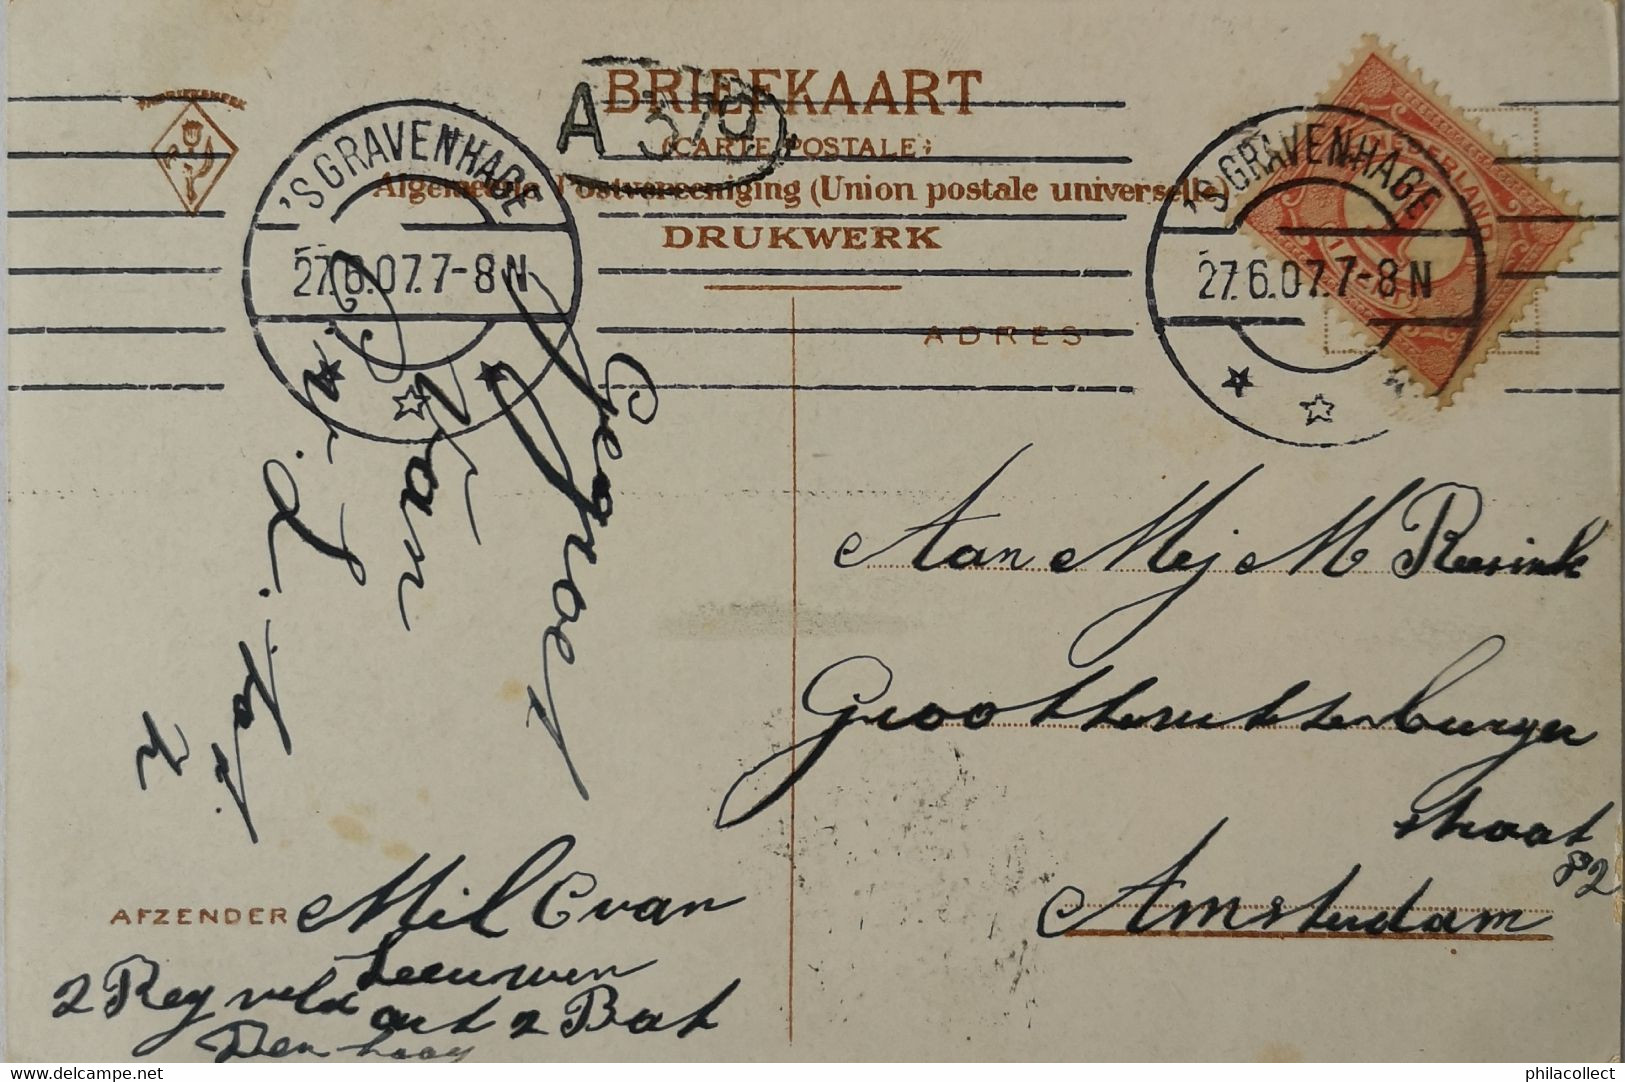 FABRIEKSMERK
BRIEFKAART
A 370
(CARTE POSTALE)
Algemeene Postvereeniging (Union postale universelle)
DRUKWERK
'S GRAVENHAGE
27.6.07.7-8N
'S GRAVENHAGE
27.6.07.7-8N
NEDERLAND
1
ADRES
Gegroet
van
Aan Mej M Reesink
Groote Wittenburger
straat
82
Amsterdam
AFZENDER Mil C van
Leeuwen
2 Reg veld art 2 Bat
Den Haag
philacollect.com
philacollect